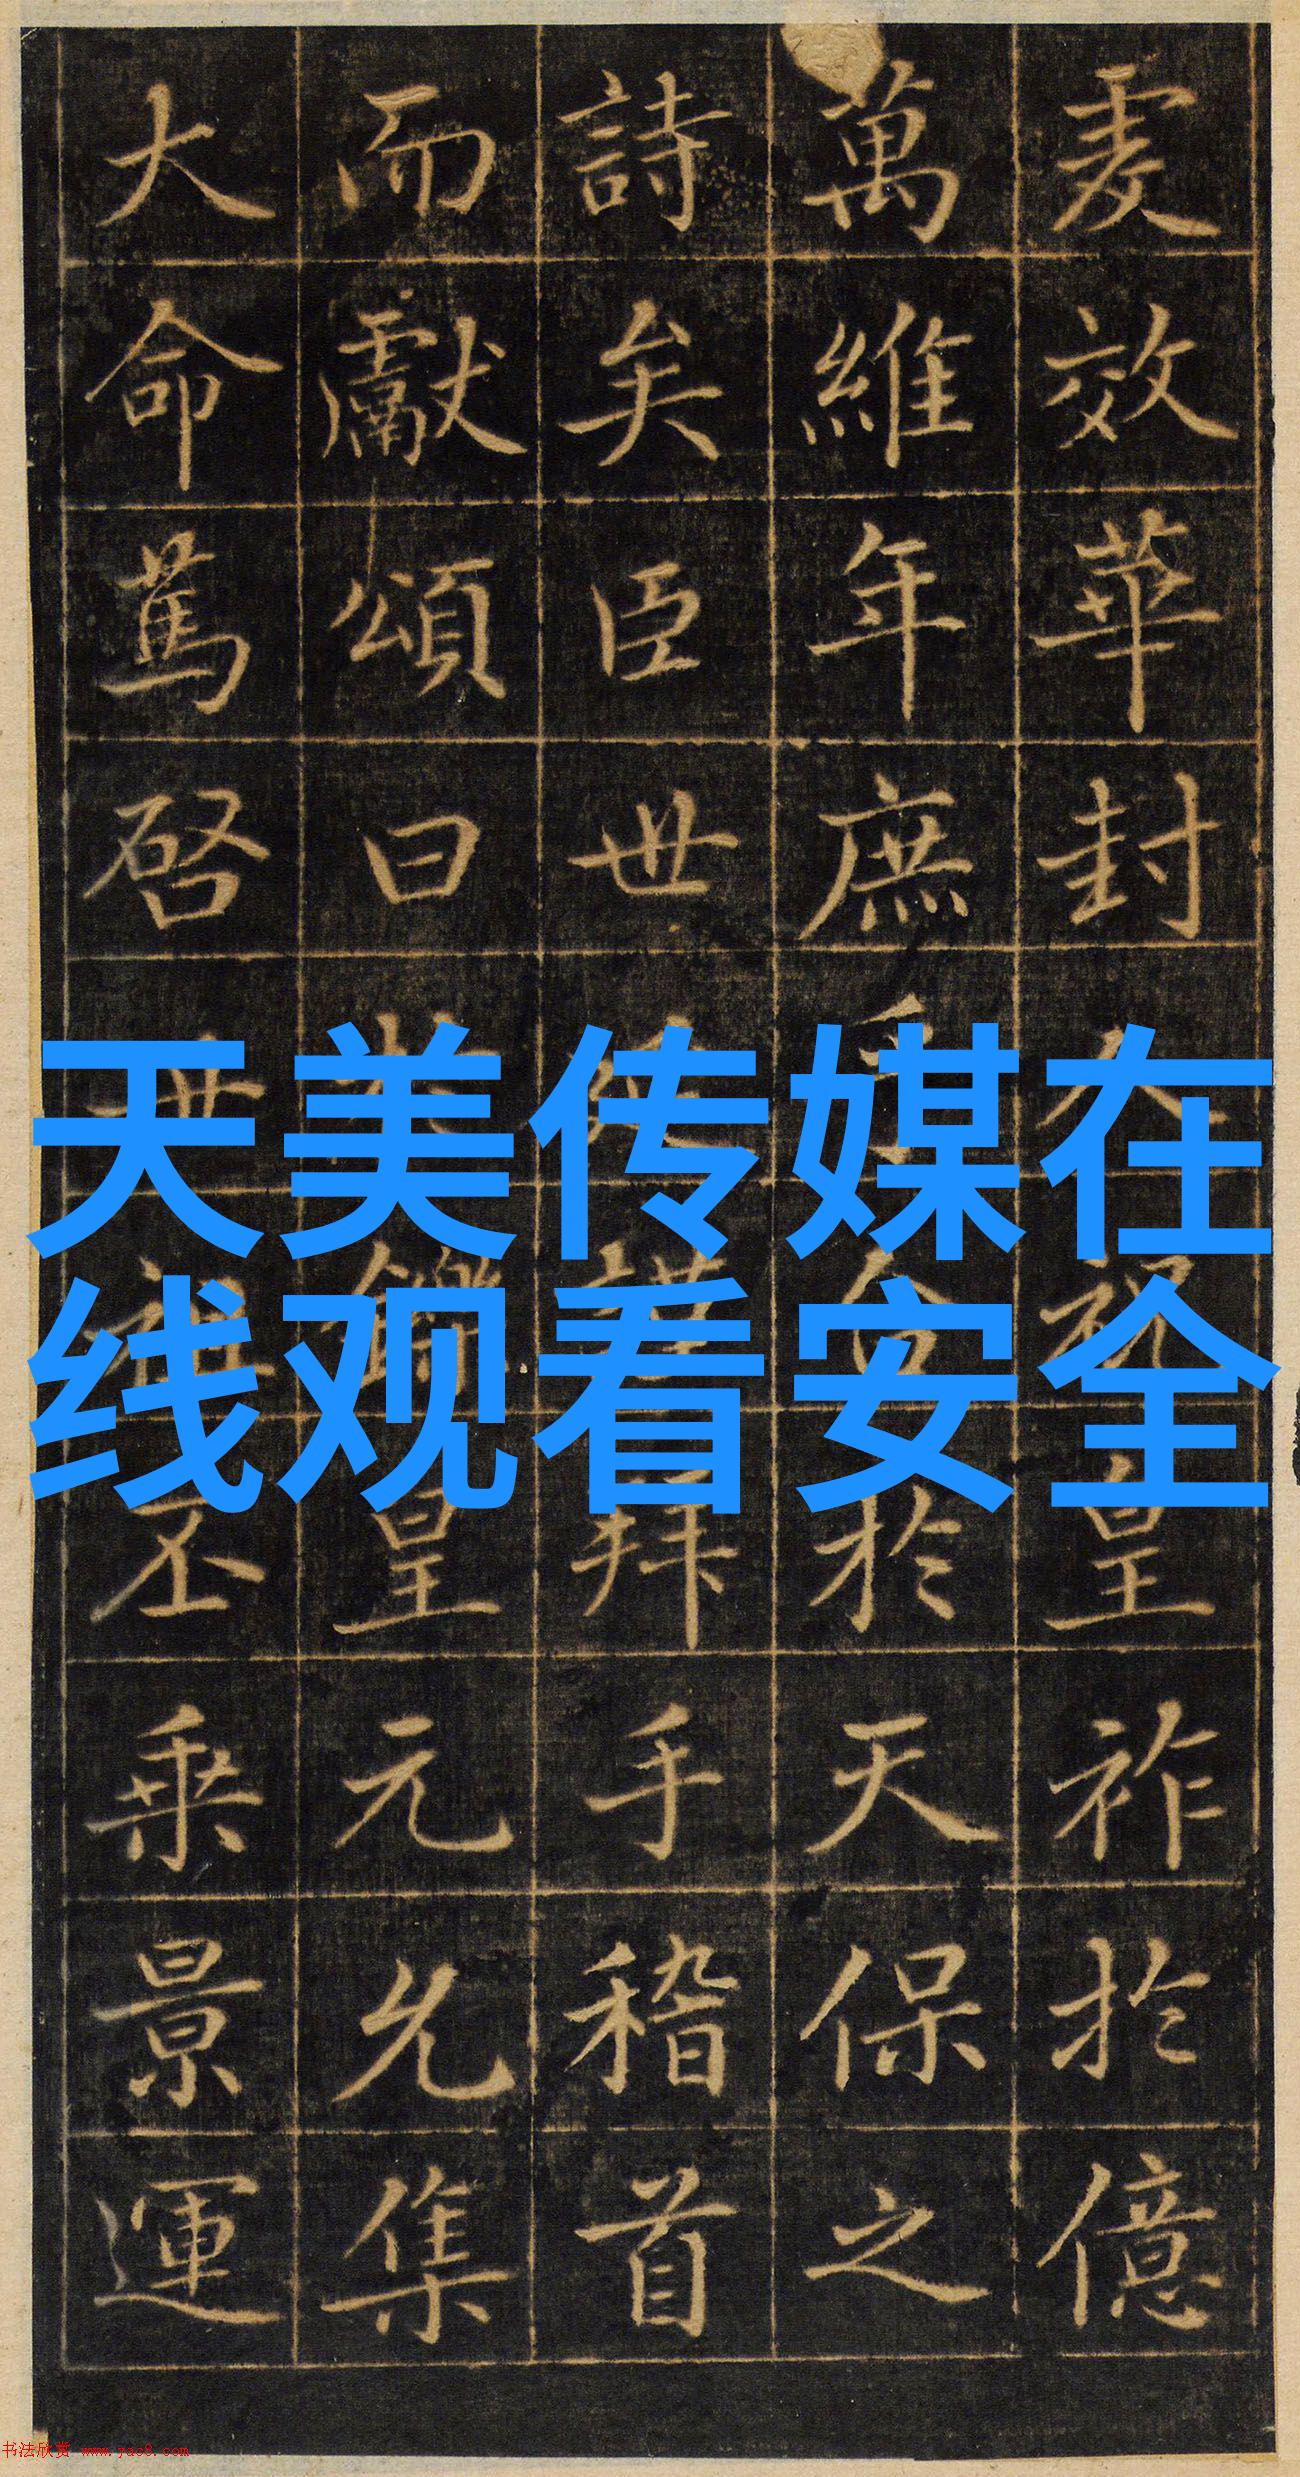 虔效華封人祝皇祚於億
萬維年庶乎合於天保之
詩矣臣世延謹拜手稽首
而獻頌曰於鑠皇元允集
大命篤啓世祖丕乘景運
天美传媒在
线观看安全
书法欣赏 www.yac8.com